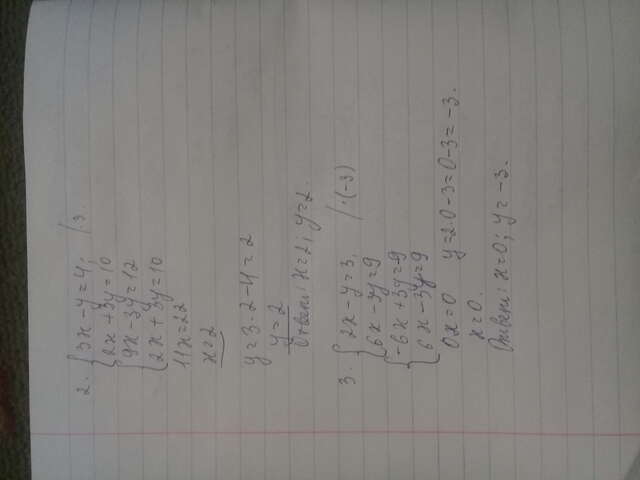 2. { 3x - y = 4; / ·3.
2x + 3y = 10
{ 9x - 3y = 12
2x + 3y = 10
11x = 22
x = 2
y = 3 · 2 - 4 = 2
y = 2
Ответ: x = 2; y = 2.
3. { 2x - y = 3, / ·(-3)
6x - 3y = 9
{ -6x + 3y = -9
6x - 3y = 9
0x = 0 y = 2·0 - 3 = 0 - 3 = -3.
x = 0.
Ответ: x = 0; y = -3.